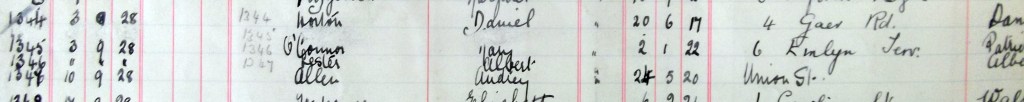 1344 3 9 28 1344 Norton Daniel " 20 6 17 4 Gaer Rd. Dan
1345
1345 3 9 28 1346 O'Connor Mary " 2 1 22 6 Emlyn Terr. Patri
1346 " " " 1347 Lester Albert Albe
1348 10 9 28 Allen Audrey " 24 5 20 Union St.